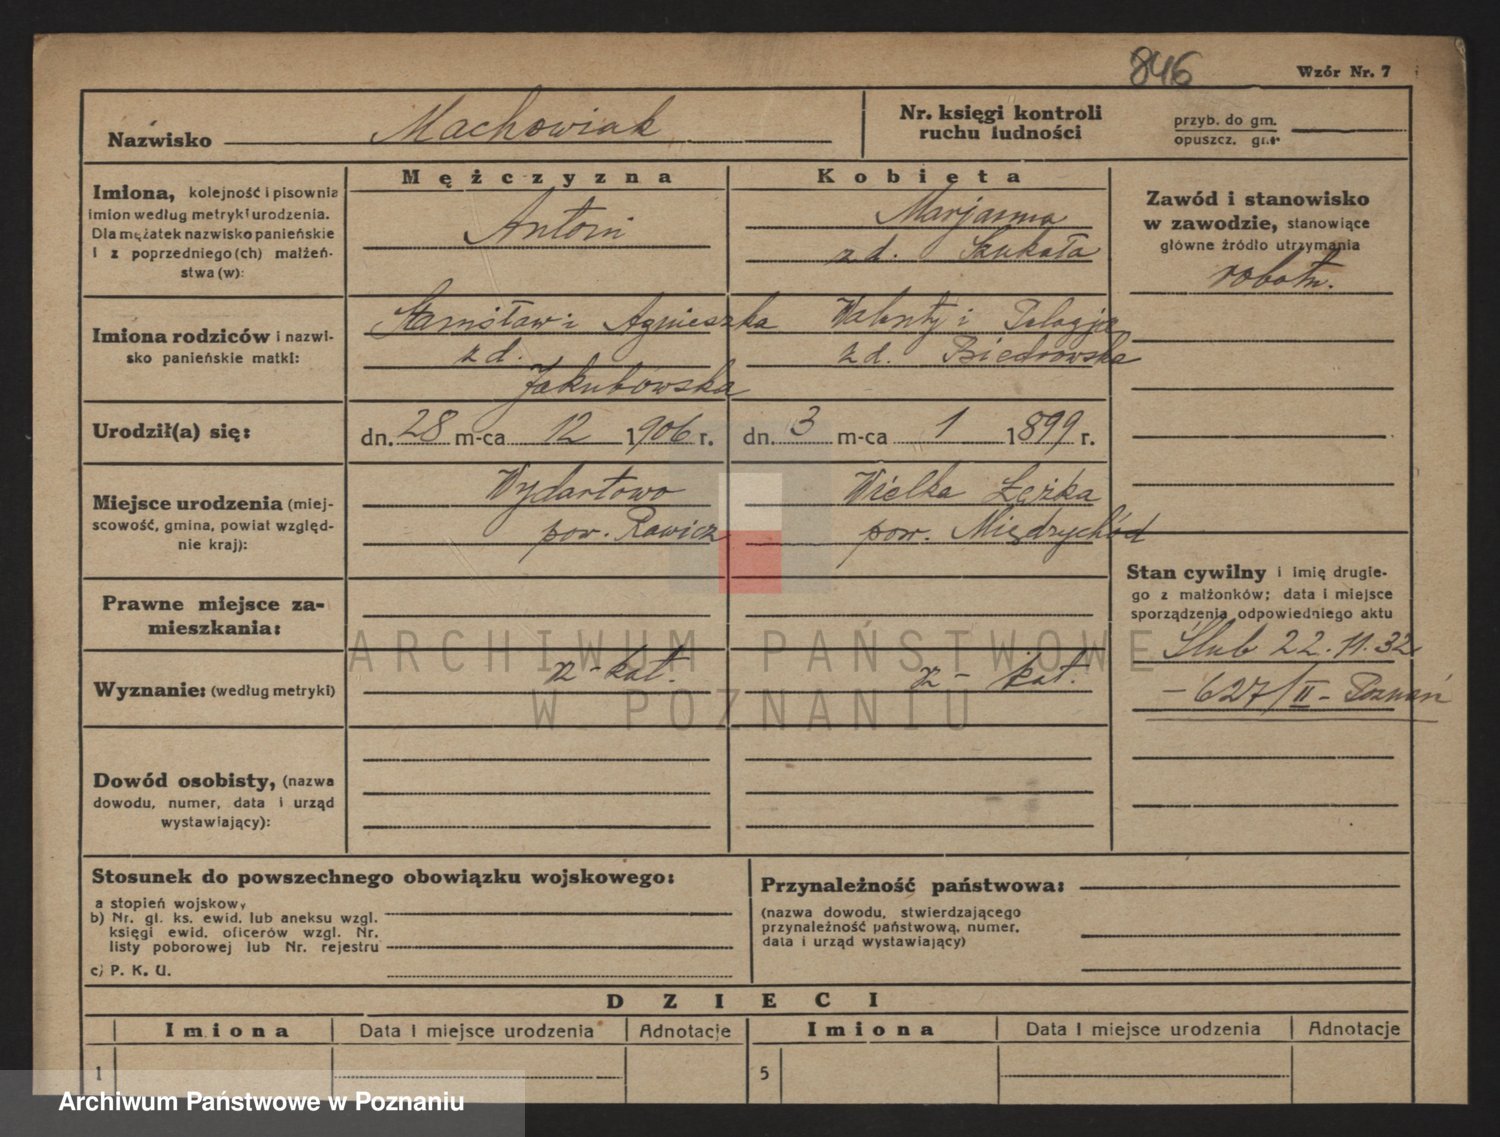 846
Wzór Nr. 7
Nazwisko Machowiak
Nr. księgi kontroli
ruchu ludności
przyb. do gm.
opuszcz. gm.
Mężczyzna
Kobieta
Imiona, kolejność i pisownia
imion według metryki urodzenia.
Dla mężatek nazwisko panieńskie
i z poprzedniego (ch) małżeń-
stwa (w):
Antoni
Marjanna
z d. Szukała
Zawód i stanowisko
w zawodzie, stanowiące
główne źródło utrzymania
robotn.
Imiona rodziców i nazwi-
sko panieńskie matki:
Stanisław i Agnieszka
z d.
Jakubowska
Walenty i Pelagja
z d. Biedrowska
Urodził(a) się:
dn. 28 m-ca 12 1906 r.
dn. 3 m-ca 1 1899 r.
Miejsce urodzenia (miej-
scowość, gmina, powiat względ-
nie kraj):
Wydartowo
pow. Rawicz
Wielka Łężka
pow. Międzychód
Stan cywilny i imię drugie-
go z małżonków; data i miejsce
sporządzenia odpowiedniego aktu
Ślub 22.11.32
- 627/II - Poznań
Prawne miejsce za-
mieszkania:
ARCHIWUM PAŃSTWOWE
W POZNANIU
Wyznanie: (według metryki)
rz-kat.
rz- kat.
Dowód osobisty, (nazwa
dowodu, numer, data i urząd
wystawiający):
Stosunek do powszechnego obowiązku wojskowego:
a stopień wojskowy
b) Nr. gl. ks. ewid. lub aneksu wzgl.
księgi ewid. oficerów wzgl. Nr.
listy poborowej lub Nr. rejestru
c) P. K. U.
Przynależność państwowa:
(nazwa dowodu, stwierdzającego
przynależność państwową, numer,
data i urząd wystawiający)
DZIECI
Imiona Data i miejsce urodzenia Adnotacje Imiona Data i miejsce urodzenia Adnotacje
1 5
Archiwum Państwowe w Poznaniu